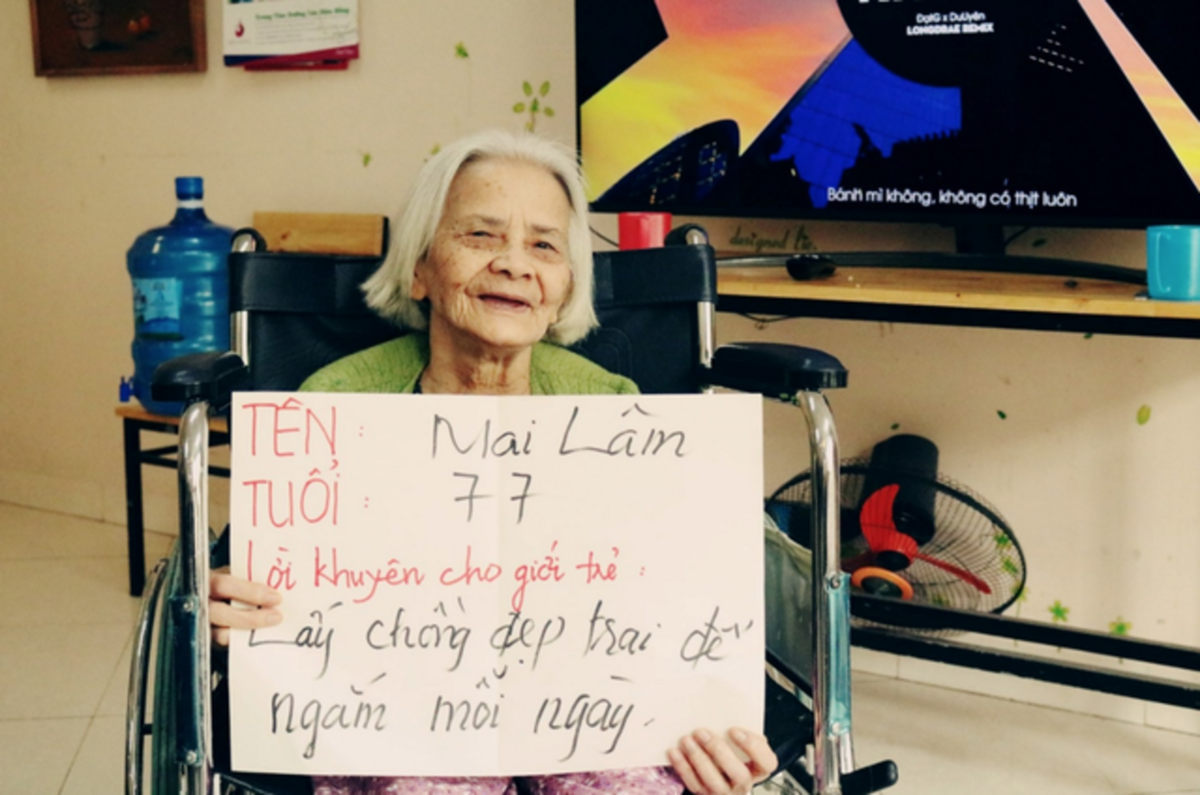 Trung Tâm Dưỡng Lão Diên Hồng
DatG x DuUyên
LONGDRAE REMIX
Bánh mì không, không có thịt luôn
designed by
TÊN : Mai Lâm
TUỔI : 77
Lời khuyên cho giới trẻ :
Lấy chồng đẹp trai để
ngắm mỗi ngày.